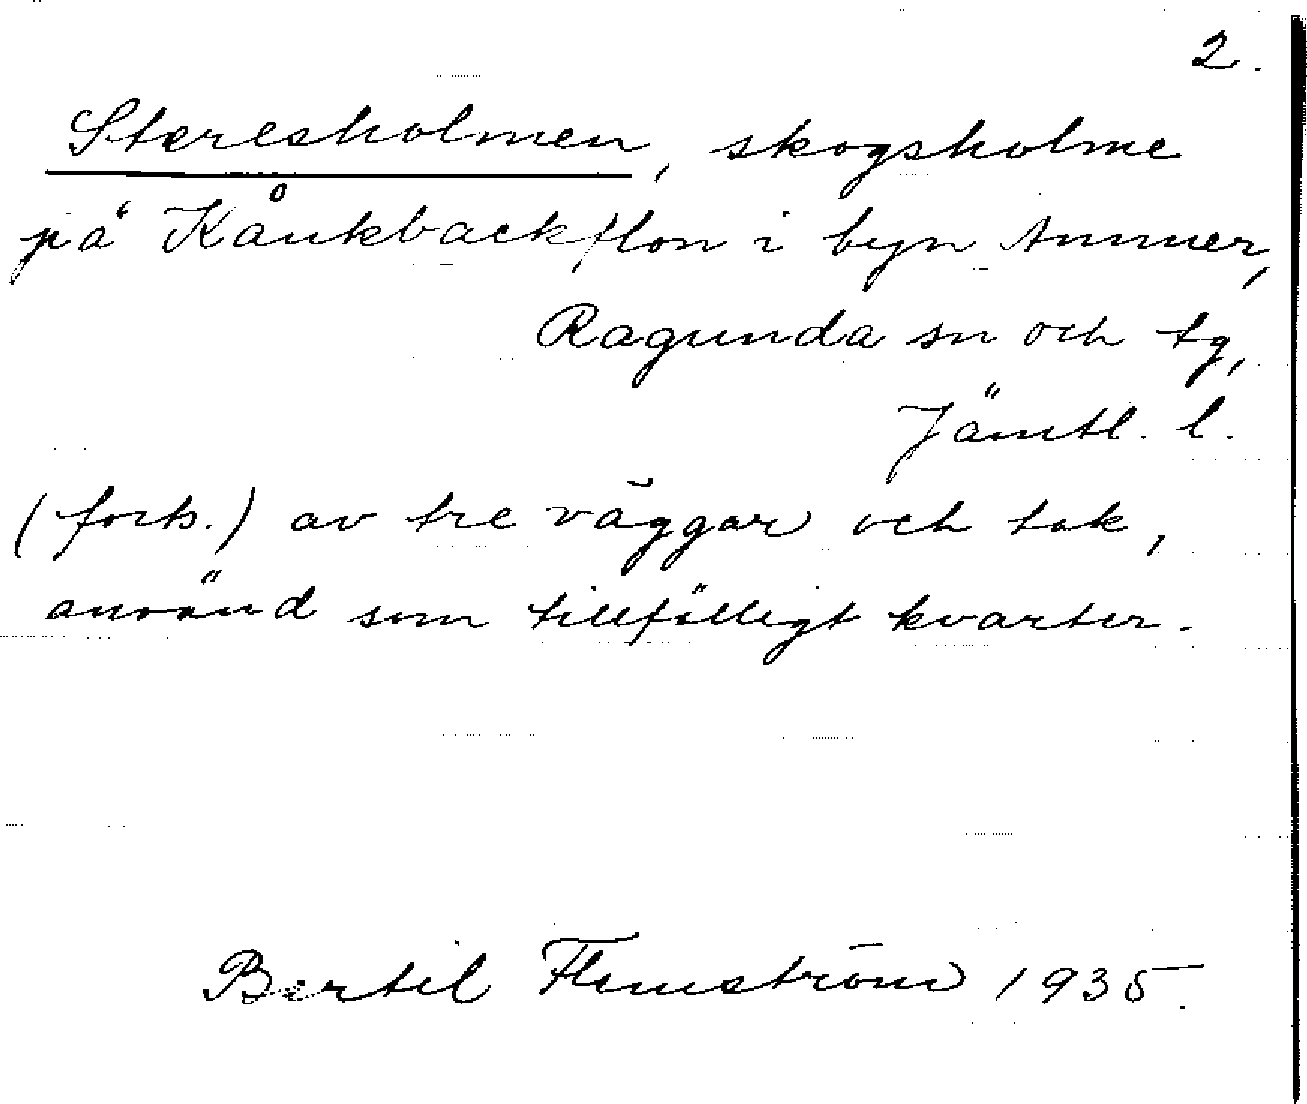 2.
Stæresholmen, skogsholme
på Kånkbackflon i byn Ammer,
Ragunda sn och tg,
Jämtl. l.
(forts.) av tre väggar och tak,
använd som tillfälligt kvarter.
Bertil Flemström 1935.